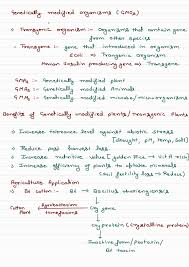 Genetically modified organisms (GMOs)
• Transgenic organism :- Organisms that contain gene
from other species
• Transgene :- gene that introduced in organism
E.coli → Transgenic Organism
Human insulin producing gene ⇒ Transgene
GMPs :- Genetically modified plant
GMAs :- Genetically modified Animals
GMMs :- Genetically modified microbe/microorganisms
Benefits of Genetically modified plants/Transgenic Plants
• Increase tolerance level against abiotic stress
[drought, pH, temp, Salt]
• Reduce post harvest loss
• Increase nutritive value [golden Rice → Vit A rich]
• Increase efficiency of plants to uptake minerals
(soil fertility loss → Reduce)
Agriculture Application
• Bt cotton :- Bt → Bacillus thuringiensis
Cotton Plant
Agrobacterium
tumefaciens
Cry gene
Cry protein (Crystalline protein)
Inactive form/Protoxin/
Bt toxin